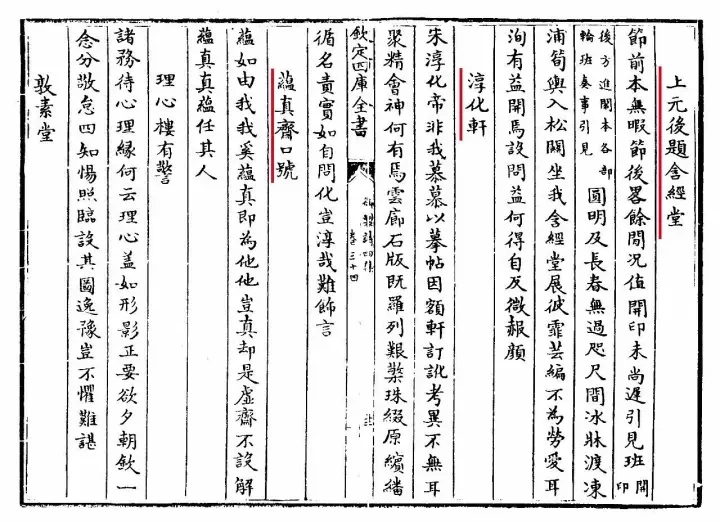 上元後題含經堂
節前本無暇節後畧餘閒況值開印未尚遲引見班開印
後方進閣本各部
輪班奏事引見圓明及長春無過咫尺間冰牀渡凍
浦筍輿入松關坐我含經堂展彼霏芸編不為勞愛耳
洵有益開焉設問益何得自反微赧顔
淳化軒
宋淳化帝非我慕慕以摹帖因額軒訂訛考異不無耳
聚精會神何有焉雲廊石版既羅列艱棐珠綴原繽繙
欽定四庫全書
御製詩四集
卷三十四
循名責實如自問化豈淳哉難飾言
蘊真齋口號
蘊如由我我奚蘊真即為他他豈真却是虛齋不設解
蘊真真蘊任其人
理心樓有警
諸務待心理緣何云理心蓋如形影正要欲夕朝欽一
念分敬怠四知惕照臨設其圖逸豫豈不懼難諶
敦素堂